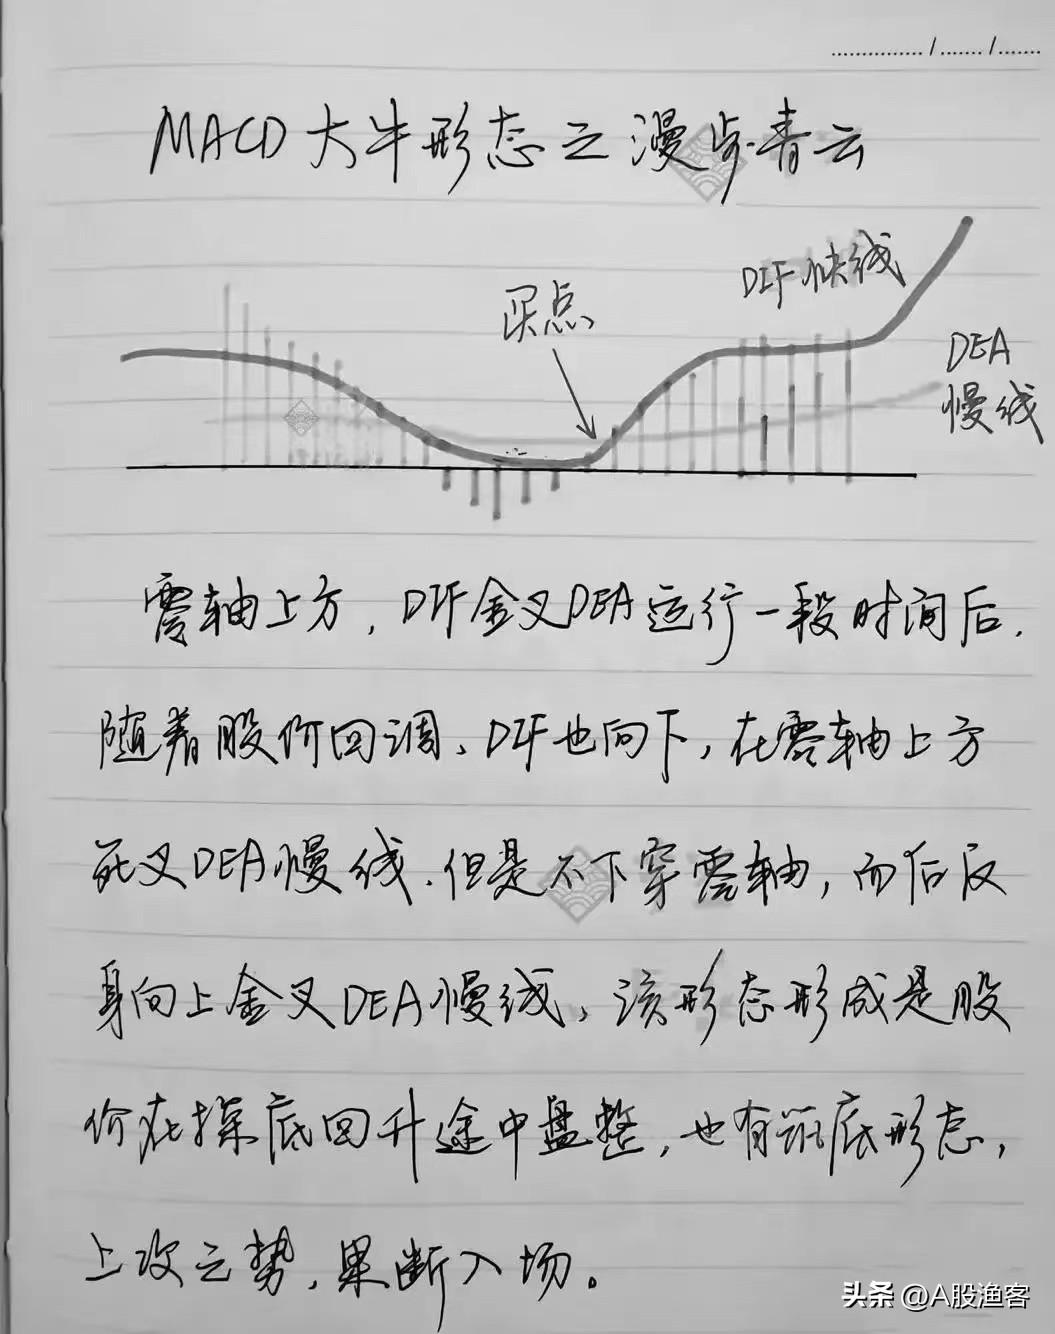 ............... / ....... / .......
MACD大牛形态之漫步青云
买点
DIF快线
DEA
慢线
零轴上方,DIF金叉DEA运行一段时间后,
随着股价回调、DIF也向下,在零轴上方
死叉DEA慢线.但是不下穿零轴,而后反
身向上金叉DEA慢线、该形态形成是股
价在探底回升途中盘整,也有筑底形态,
上攻之势,果断入场。
头条 @A股渔客